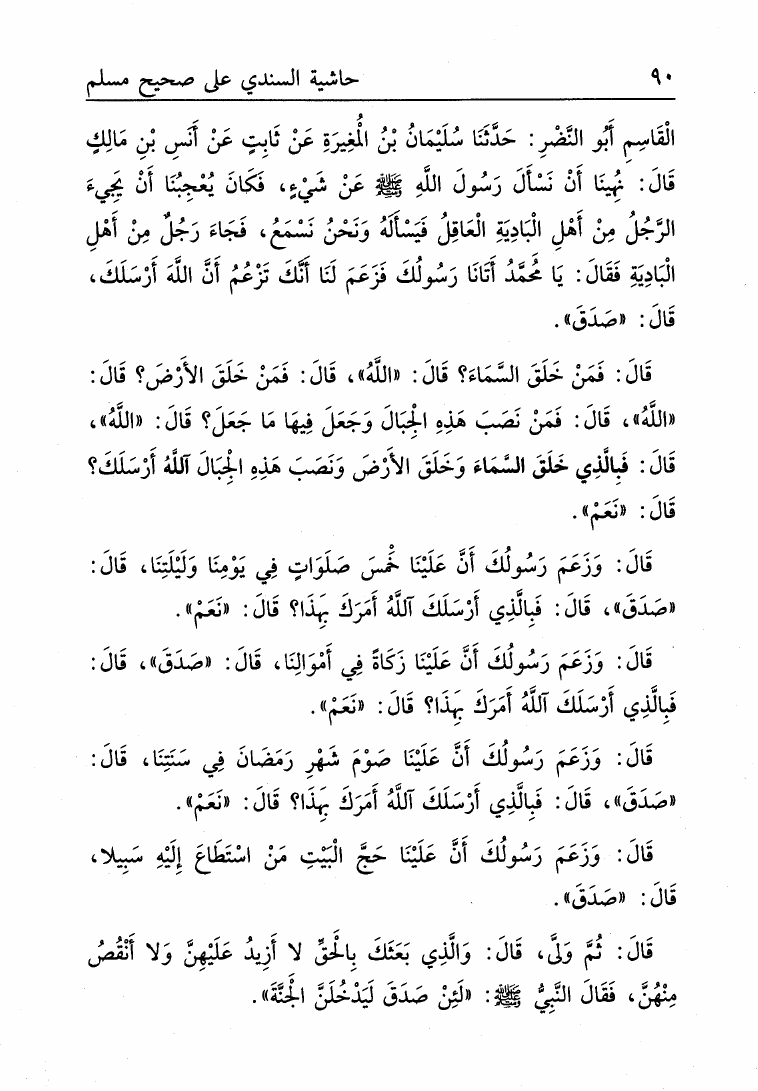 ٩٠ حاشية السندي على صحيح مسلم
الْقَاسِمِ أَبُو النَّضْرِ: حَدَّثَنَا سُلَيْمَانُ بْنُ الْمُغِيرَةِ عَنْ ثَابِتٍ عَنْ أَنَسِ بْنِ مَالِكٍ
قَالَ: نُهِينَا أَنْ نَسْأَلَ رَسُولَ اللَّهِ ﷺ عَنْ شَيْءٍ، فَكَانَ يُعْجِبُنَا أَنْ يَجِيءَ
الرَّجُلُ مِنْ أَهْلِ الْبَادِيَةِ الْعَاقِلُ فَيَسْأَلَهُ وَنَحْنُ نَسْمَعُ، فَجَاءَ رَجُلٌ مِنْ أَهْلِ
الْبَادِيَةِ فَقَالَ: يَا مُحَمَّدُ أَتَانَا رَسُولُكَ فَزَعَمَ لَنَا أَنَّكَ تَزْعُمُ أَنَّ اللَّهَ أَرْسَلَكَ،
قَالَ: «صَدَقَ».
قَالَ: فَمَنْ خَلَقَ السَّمَاءَ؟ قَالَ: «اللَّهُ»، قَالَ: فَمَنْ خَلَقَ الأَرْضَ؟ قَالَ:
«اللَّهُ»، قَالَ: فَمَنْ نَصَبَ هَذِهِ الْجِبَالَ وَجَعَلَ فِيهَا مَا جَعَلَ؟ قَالَ: «اللَّهُ»،
قَالَ: فَبِالَّذِي خَلَقَ السَّمَاءَ وَخَلَقَ الأَرْضَ وَنَصَبَ هَذِهِ الْجِبَالَ آللَّهُ أَرْسَلَكَ؟
قَالَ: «نَعَمْ».
قَالَ: وَزَعَمَ رَسُولُكَ أَنَّ عَلَيْنَا خَمْسَ صَلَوَاتٍ فِي يَوْمِنَا وَلَيْلَتِنَا، قَالَ:
«صَدَقَ»، قَالَ: فَبِالَّذِي أَرْسَلَكَ آللَّهُ أَمَرَكَ بِهَذَا؟ قَالَ: «نَعَمْ».
قَالَ: وَزَعَمَ رَسُولُكَ أَنَّ عَلَيْنَا زَكَاةً فِي أَمْوَالِنَا، قَالَ: «صَدَقَ»، قَالَ:
فَبِالَّذِي أَرْسَلَكَ آللَّهُ أَمَرَكَ بِهَذَا؟ قَالَ: «نَعَمْ».
قَالَ: وَزَعَمَ رَسُولُكَ أَنَّ عَلَيْنَا صَوْمَ شَهْرِ رَمَضَانَ فِي سَنَتِنَا، قَالَ:
«صَدَقَ»، قَالَ: فَبِالَّذِي أَرْسَلَكَ آللَّهُ أَمَرَكَ بِهَذَا؟ قَالَ: «نَعَمْ».
قَالَ: وَزَعَمَ رَسُولُكَ أَنَّ عَلَيْنَا حَجَّ الْبَيْتِ مَنْ اسْتَطَاعَ إِلَيْهِ سَبِيلا،
قَالَ: «صَدَقَ».
قَالَ: ثُمَّ وَلَّى، قَالَ: وَالَّذِي بَعَثَكَ بِالْحَقِّ لا أَزِيدُ عَلَيْهِنَّ وَلا أَنْقُصُ
مِنْهُنَّ، فَقَالَ النَّبِيُّ ﷺ: «لَئِنْ صَدَقَ لَيَدْخُلَنَّ الْجَنَّةَ».